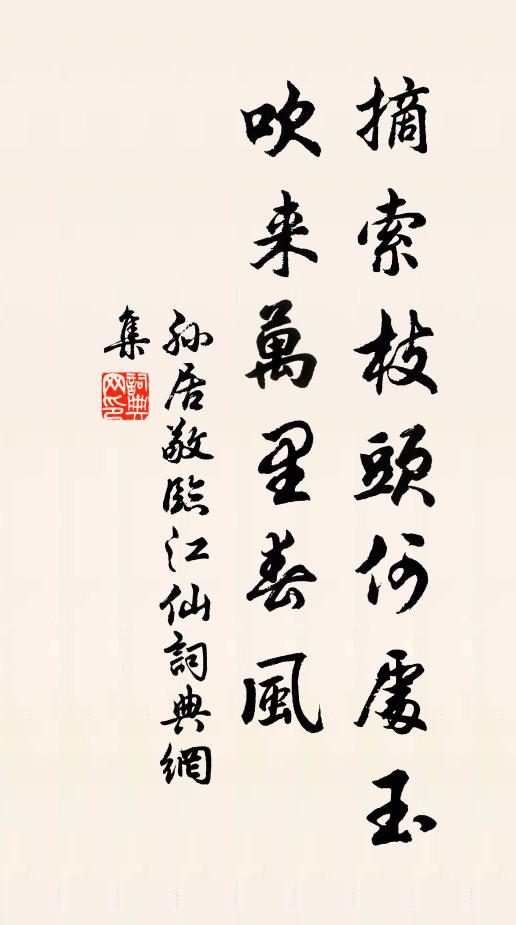 摘索枝頭何處玉
吹来萬里春風
孫居敬臨江仙詞典網
集
詞典
网印